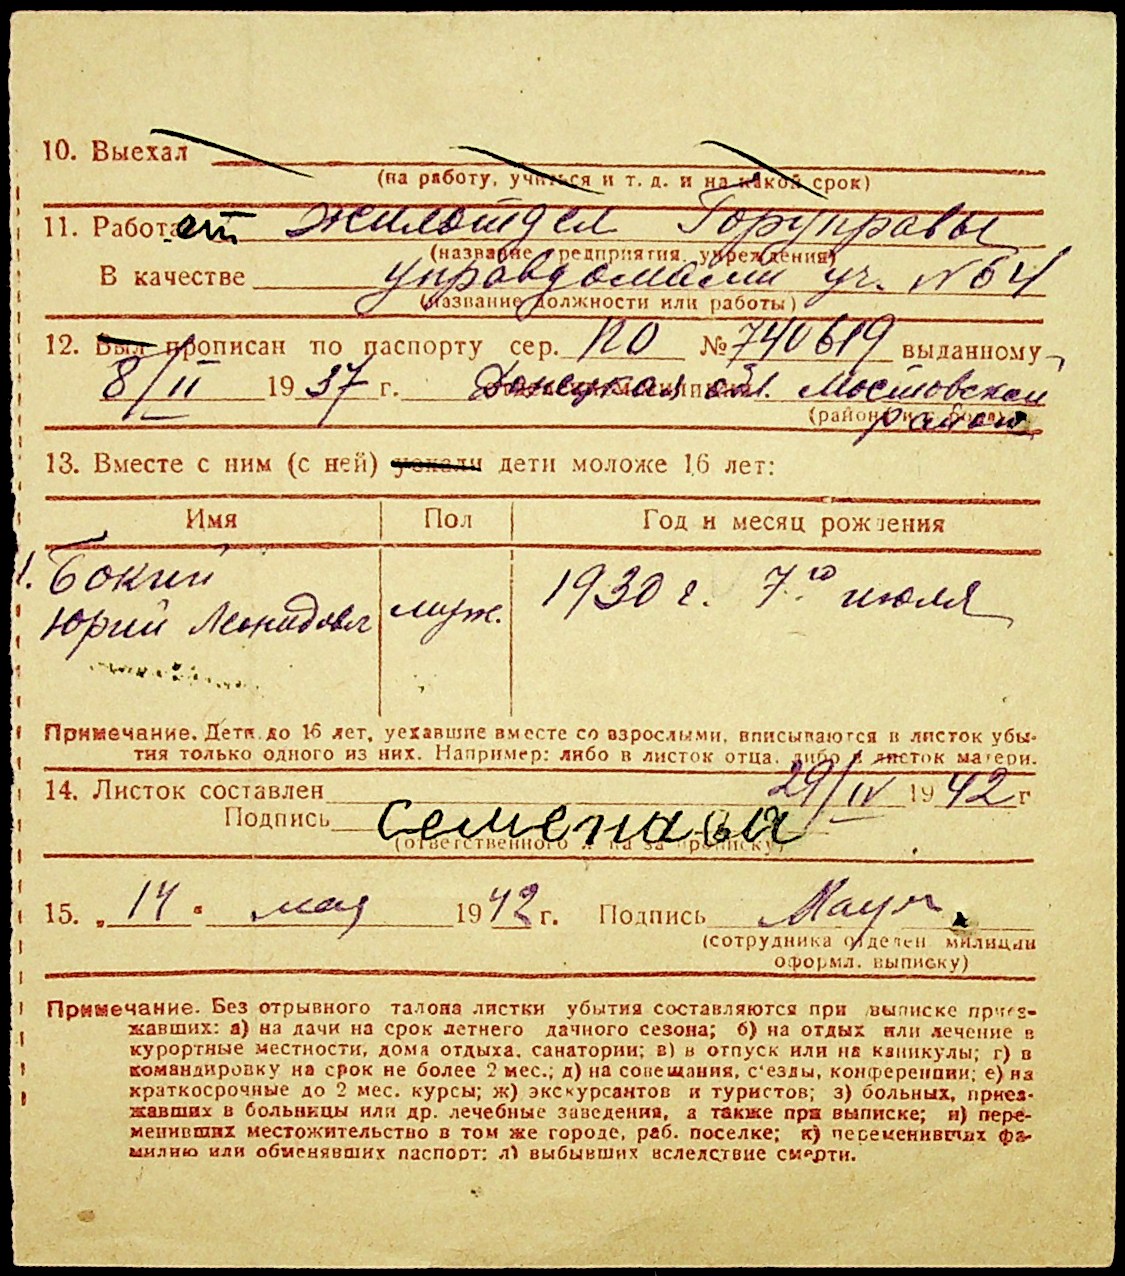 10. Выехал
(на работу, учиться и т. д. и на какой срок)
11. Работает Жилотдел Горуправы
(название предприятия, учреждения)
В качестве управдомами уч. №64
(название должности или работы)
12. Был прописан по паспорту сер. ПО № 740619 выданному
8/II 1937 г. Донецкая обл. Мостовский
район
13. Вместе с ним (с ней) уехали дети моложе 16 лет:
Имя Пол Год и месяц рождения
1. Бокий
Юрий Леонидович муж. 1930 г. 7го июля
Примечание. Дети до 16 лет, уехавшие вместе со взрослыми, вписываются в листок убы-
тия только одного из них. Например: либо в листок отца, либо в листок матери.
14. Листок составлен 29/IV 1942 г
Подпись Семенова
(ответственного л на за прописку)
15. „14" мая 1942 г. Подпись
(сотрудника отделен милиции
оформл. выписку)
Примечание. Без отрывного талона листки убытия составляются при выписке приез-
жавших: а) на дачи на срок летнего дачного сезона; б) на отдых или лечение в
курортные местности, дома отдыха, санатории; в) в отпуск или на каникулы; г) в
командировку на срок не более 2 мес.; д) на совещания, с'езды, конференции; е) на
краткосрочные до 2 мес. курсы; ж) экскурсантов и туристов; з) больных, приез-
жавших в больницы или др. лечебные заведения, а также при выписке; и) пере-
менивших местожительство в том же городе, раб. поселке; к) переменивших фа-
милию или обменявших паспорт; л) выбывших вследствие смерти.